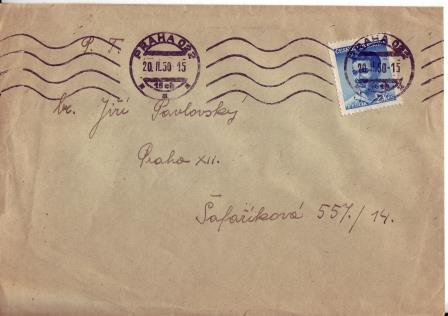 P. T.
PRAHA 022
20.II.50-15
1sch
a
ČESKO
PRAHA 022
20.II.50-15
br. Jiří Pavlovský
Praha XII.
Šafaříková 557./14.